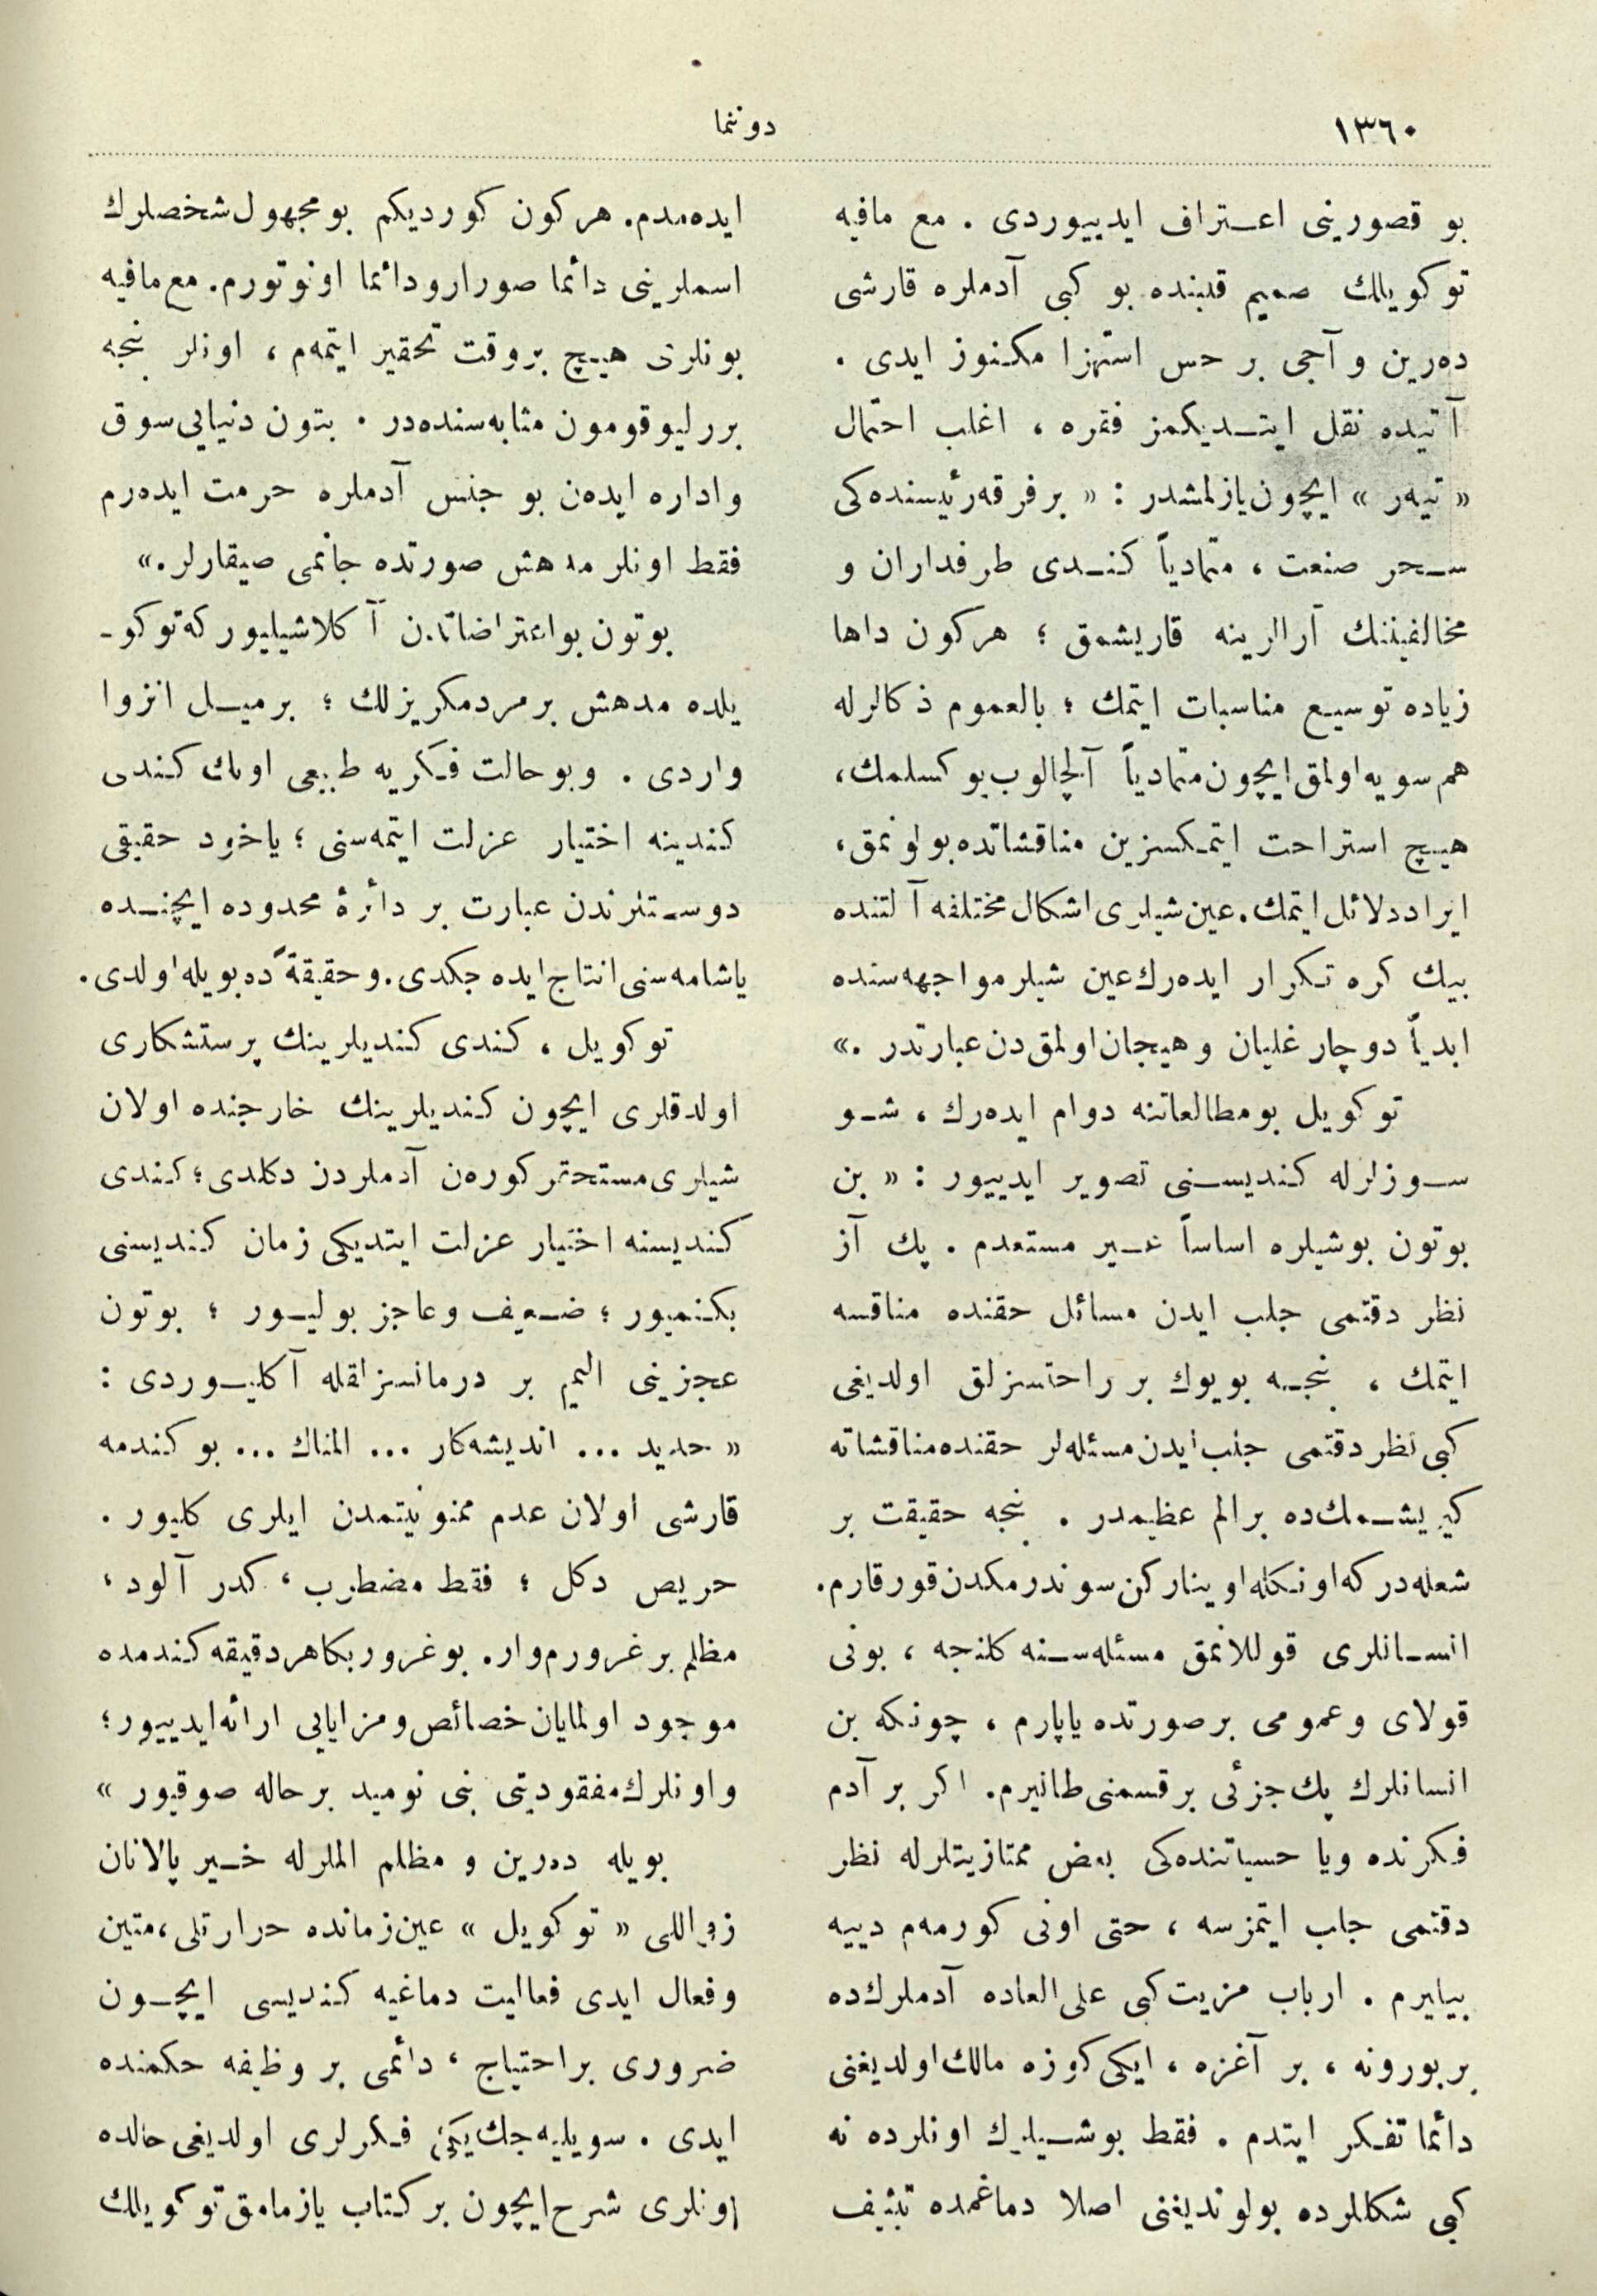 ١٣٦٠
دوننما
بو قصورينى اعـتراف ايدييوردى . مع مافيه
توكويللك صميم قلبنده بو كبى آدملره قارشى
دەرين و آجى بر حس استهزا مكنوز ايدى .
آتيده نقل ايتـديكمز فقره ، اغلب احتمال
« تيەر » ايچون يازلمشدر : « بر فرقه رئيسنده كى
سـحر صنعت ، متمادياً كنـدى طرفداران و
مخالفيننك آرالرينه قاريشمق ؛ هركون داها
زياده توسيـع مناسبات ايتمك ؛ بالعموم ذكالرله
هم سويه اولمق ايچون متمادياً آلچالوب يوكسلمك ،
هيـچ استراحت ايتمكسزين مناقشاتده بولونمق ،
ايراد دلائل ايتمك . عين شيلرى اشكال مختلفه آلتنده
بيك كره تكرار ايدەرك عين شيلر مواجهه سنده
ابدياً دوچار غليان و هيجان اولمق دن عبارتدر . »
توكويل بو مطالعاتنه دوام ايدەرك ، شـو
سـوزلرله كنديسـنى تصوير ايدييور : « بن
بوتون بو شيلره اساساً غـير مستعدم . پك آز
نظر دقتمى جلب ايدن مسائل حقنده مناقسه
ايتمك ، نجـه بويوك بر راحتسزلق اولديغى
كبى نظر دقتمى جلب ايدن مسئله لر حقنده مناقشاته
كيريشـمك ده بر الم عظيمدر . نجه حقيقت بر
شعله در كه اونكله اويناركن سوندرمكدن قورقارم .
انسـانلرى قوللانمق مسئله سـنه كلنجه ، بونى
قولاى و عمومى بر صورتده ياپارم ، چونكه بن
انسانلرك پك جزئى بر قسمنى طانيرم . اكر بر آدم
فكرنده ويا حسياتنده كى بعض ممتازيتلرله نظر
دقتمى جلب ايتمزسه ، حتى اونى كورمەم دييه
بيليرم . ارباب مزيت كبى على العاده آدملرك ده
بر بورونه ، بر آغزه ، ايكى كوزه مالك اولديغنى
دائما تفكر ايتدم . فقط بو شـيلرك اونلرده نه
كبى شكللرده بولونديغنى اصلا دماغمده تثبيت
ايدەمدم . هر كون كورديكم بو مجهول شخصلرك
اسملرينى دائما صورار و دائما اونوتورم . مع مافيه
بونلرى هيـچ بر وقت تحقير ايتمەم ، اونلر نجه
بر رليوقومون مثابه سنده در . بتون دنيايى سوق
و اداره ايدەن بو جنس آدملره حرمت ايدەرم
فقط اونلر مدهش صورتده جانمى صيقارلر . »
بوتون بو اعتراضاتدن آكلاشيليور كه توكو ـ
يلده مدهش بر مردمكريزلك ؛ بر ميـل انزوا
واردى . و بو حالت فكريه طبيعى اونك كندى
كندينه اختيار عزلت ايتمه سنى ؛ ياخود حقيقى
دوسـتلرندن عبارت بر دائرۀ محدوده ايچنـده
ياشامه سنى انتاج ايده جكدى . و حقيقةً ده بويله اولدى .
توكويل ، كندى كنديلرينك پرستشكارى
اولدقلرى ايچون كنديلرينك خارجنده اولان
شيلرى مستحقر كورەن آدملردن دكلدى ؛ كندى
كنديسنه اختيار عزلت ايتديكى زمان كنديسنى
بكنميور ؛ ضـعيف و عاجز بوليـور ؛ بوتون
عجزينى اليم بر درمانسزلقله آكليـوردى :
« حديد ... انديشه كار ... المناك ... بو كندمه
قارشى اولان عدم ممنونيتمدن ايلرى كليور .
حريص دكل ؛ فقط مضطرب ، كدر آلود ،
مظلم بر غرورم وار . بو غرور بكا هر دقيقه كندمده
موجود اولمايان خصائص و مزايايى ارائه ايدييور ؛
و اونلرك مفقوديتى بنى نوميد بر حاله صوقيور »
بويله دەرين و مظلم المלרله خـير پالانان
زواللى « توكويل » عين زمانده حرارتلى ، متين
و فعال ايدى فعاليت دماغيه كنديسى ايچـون
ضرورى بر احتياج ، دائمى بر وظيفه حكمنده
ايدى . سويليه جك يكى فكرلرى اولديغى حالده
اونلرى شرح ايچون بر كتاب يازمامق توكويللك